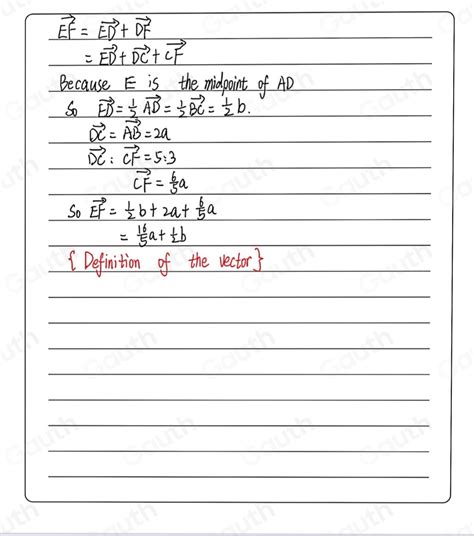 EF⃗ = ED⃗ + DF⃗
= ED⃗ + DC⃗ + CF⃗
Because E is the midpoint of AD
So ED⃗ = 1/2 AD⃗ = 1/2 BC⃗ = 1/2 b.
DC⃗ = AB⃗ = 2a
DC⃗ : CF⃗ = 5:3
CF⃗ = 6/5 a
So EF⃗ = 1/2 b + 2a + 6/5 a
= 16/5 a + 1/2 b
{ Definition of the vector }
Gauth